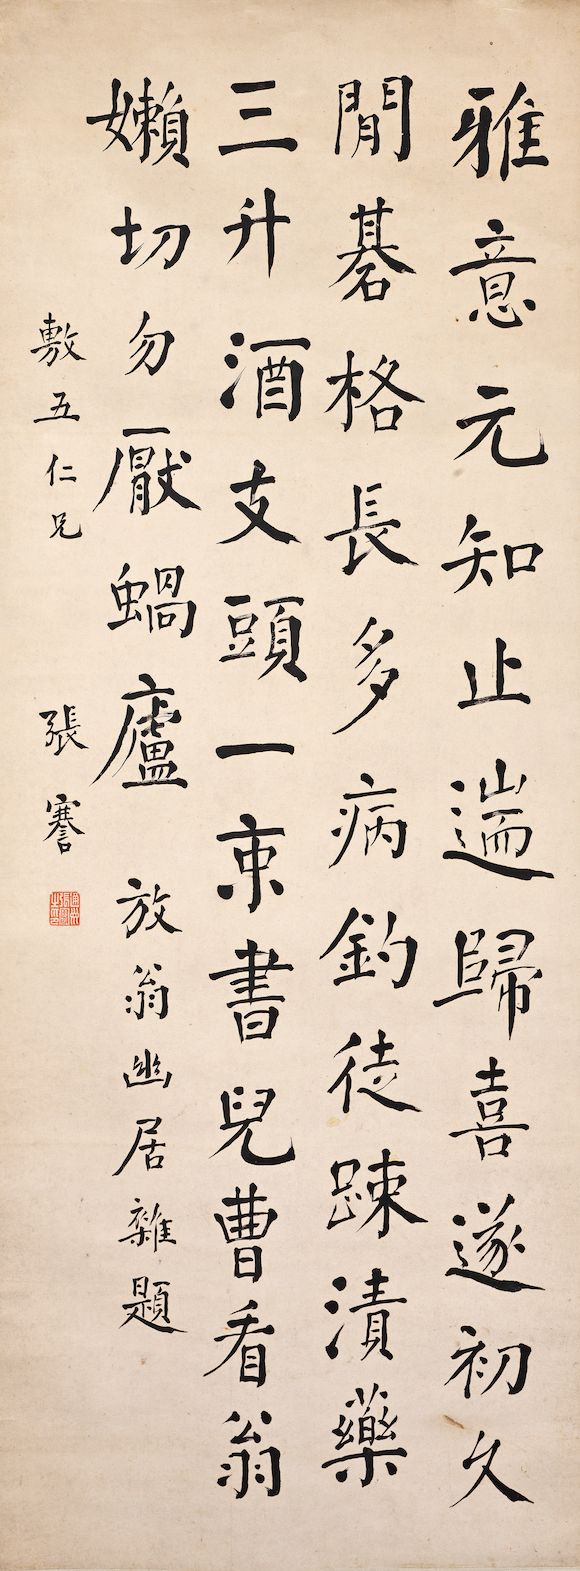 雅意元知止遄歸喜遂初久
閒碁格長多病釣徒踈漬藥
三升酒支頭一束書兒曹看翁
嬾切勿厭蝸廬 放翁幽居雜題
敷五仁兄 張謇